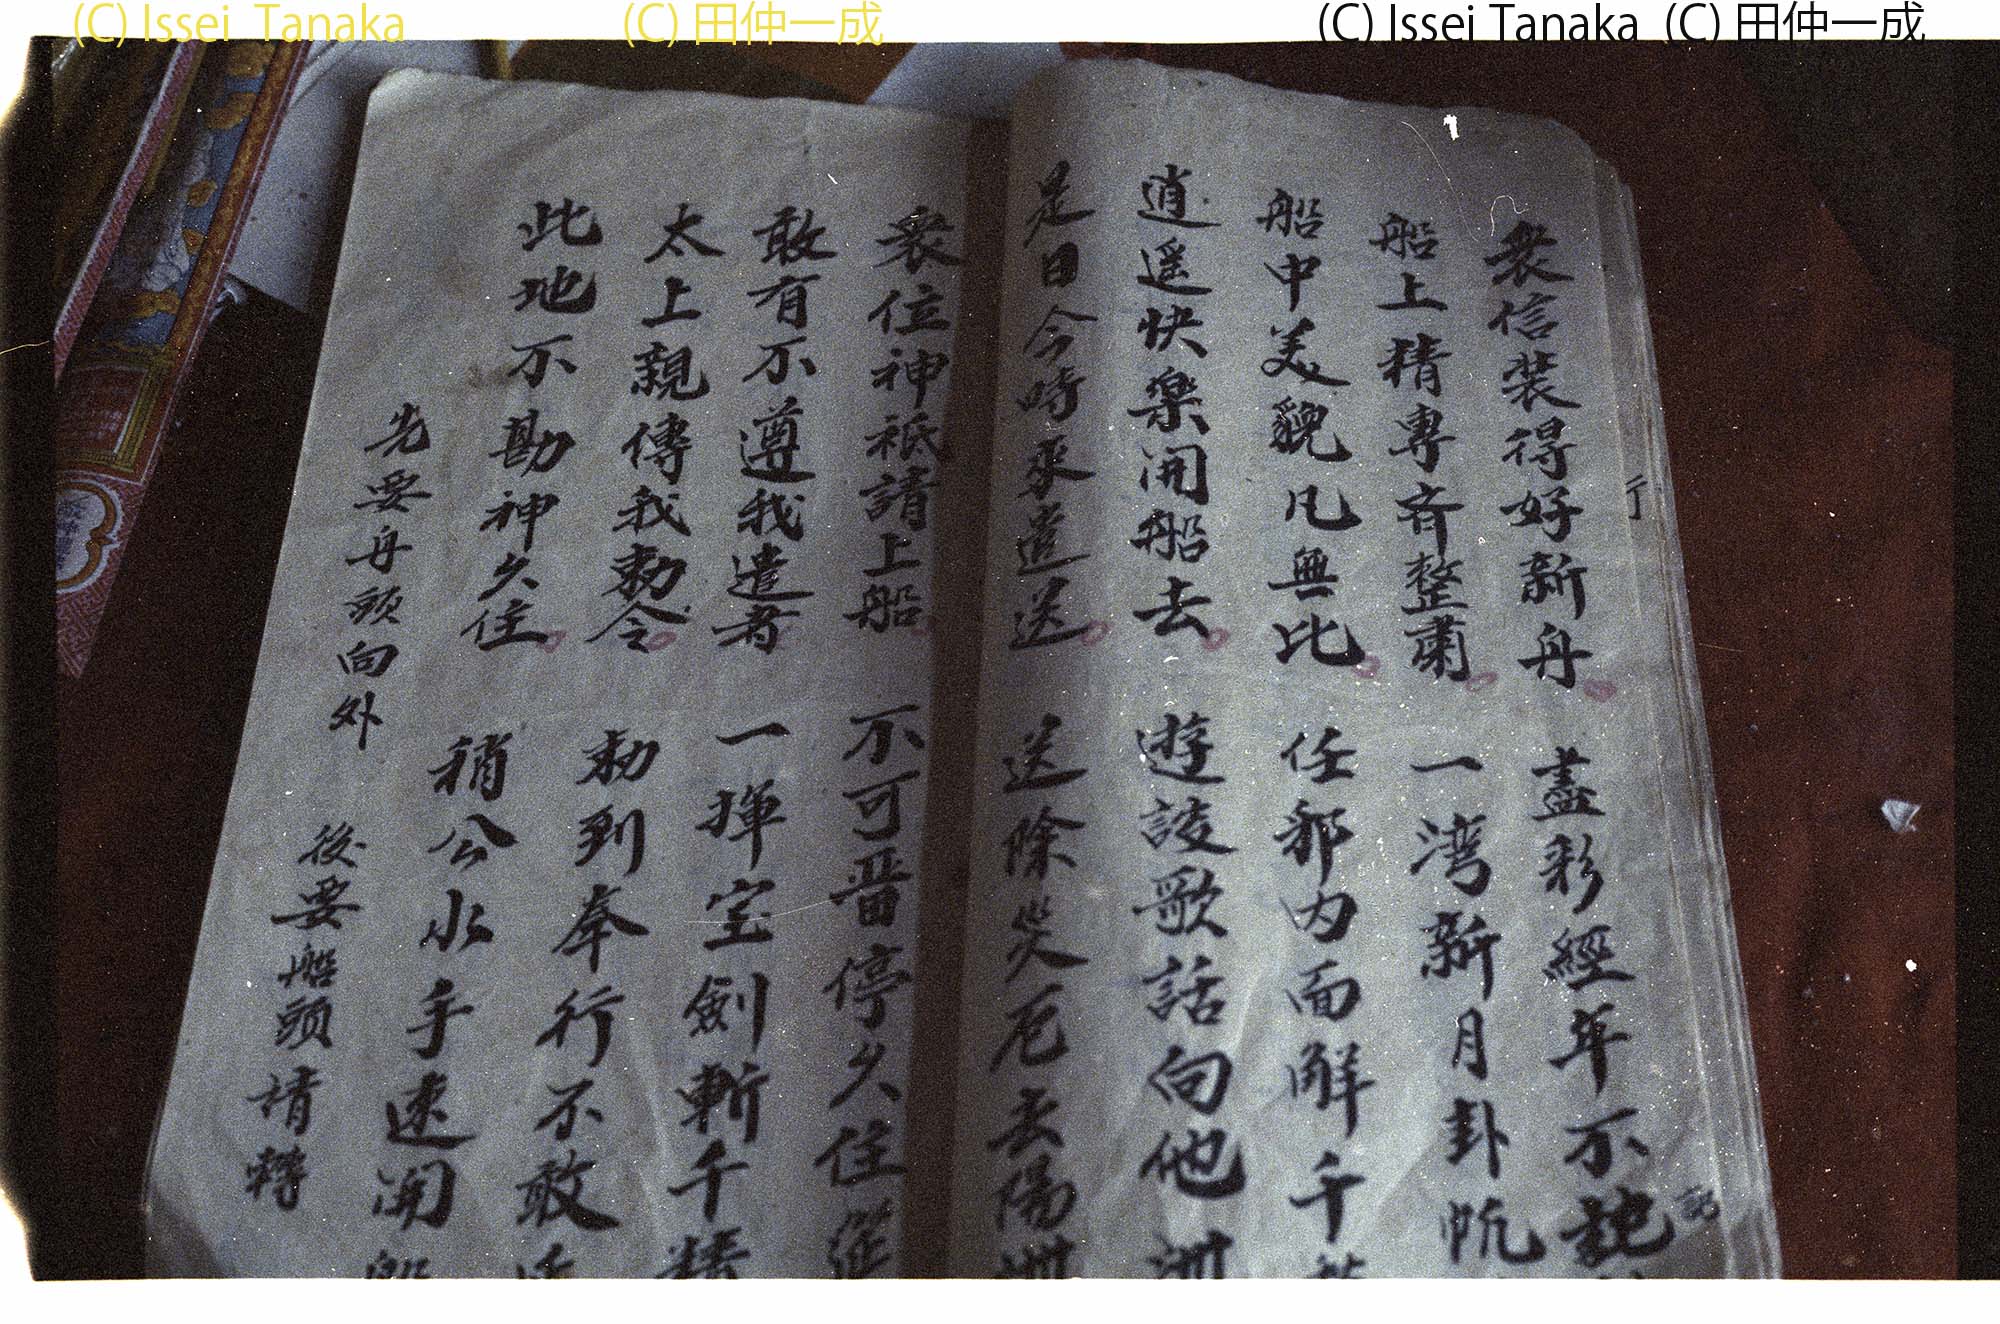 (C) Issei Tanaka (C) 田仲一成 (C) Issei Tanaka (C) 田仲一成
衆信装得好新舟 盡彩經年不
船上精專齊整肅 一湾新月卦帆
船中美貌凡無比 任邪内面解千
逍遥快樂開船去 遊談歌話向他洲
是日今時來遣送 送除災厄去陽洲
衆位神祇請上船 不可晋停久住
敢有不遵我遣者 一揮宝劍斬千精
太上親傳我勅令 勅到奉行不敢
此地不勘神久住 稍公水手速開船
先要舟頭向外 後要船頭請轉
行